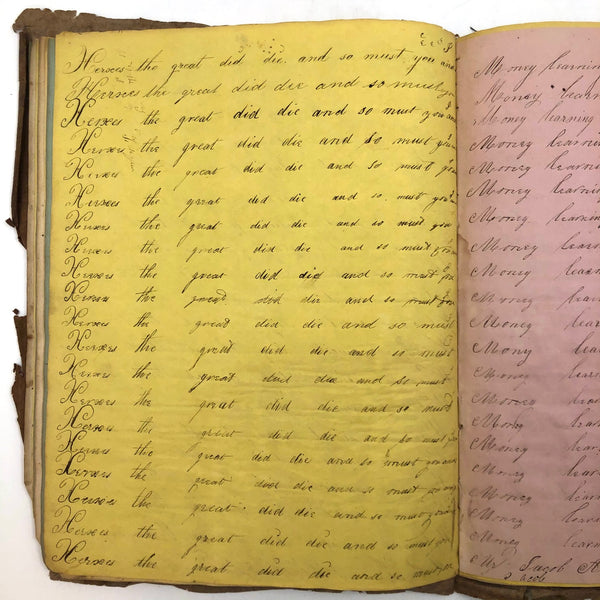 Xerxes the great did die and so must you and
Xerxes the great did die and so must you
Xerxes the great did die and so must you and
Xerxes the great did die and so must you
Xerxes the great did die and so must you
Xerxes the great did die and so must you
Xerxes the great did die and so must you
Xerxes the great did die and so must you
Xerxes the great did did and so must you
Xerxes the great did die and so must you
Xerxes the great did die and so must
Xerxes the great did die and so must
Xerxes the great did die and so must
Xerxes the great did die and so must
Xerxes the great did die and so must you
Xerxes the great did die and so must you and
Xerxes the great did die and so must you
Xerxes the great did die and so must you
Xerxes the great did die and so must you
Xerxes the great did die and so must you
Money learning
Money learn
Money learning
Money learning
Money learning
Money learning
Money learning
Money learning
Money learning
Money learning
Money learning
Mony learning
Money learning
Money learning
Money learning
Money learning
Money learning
Money learning
Money learning
Money learning
Mr Jacob